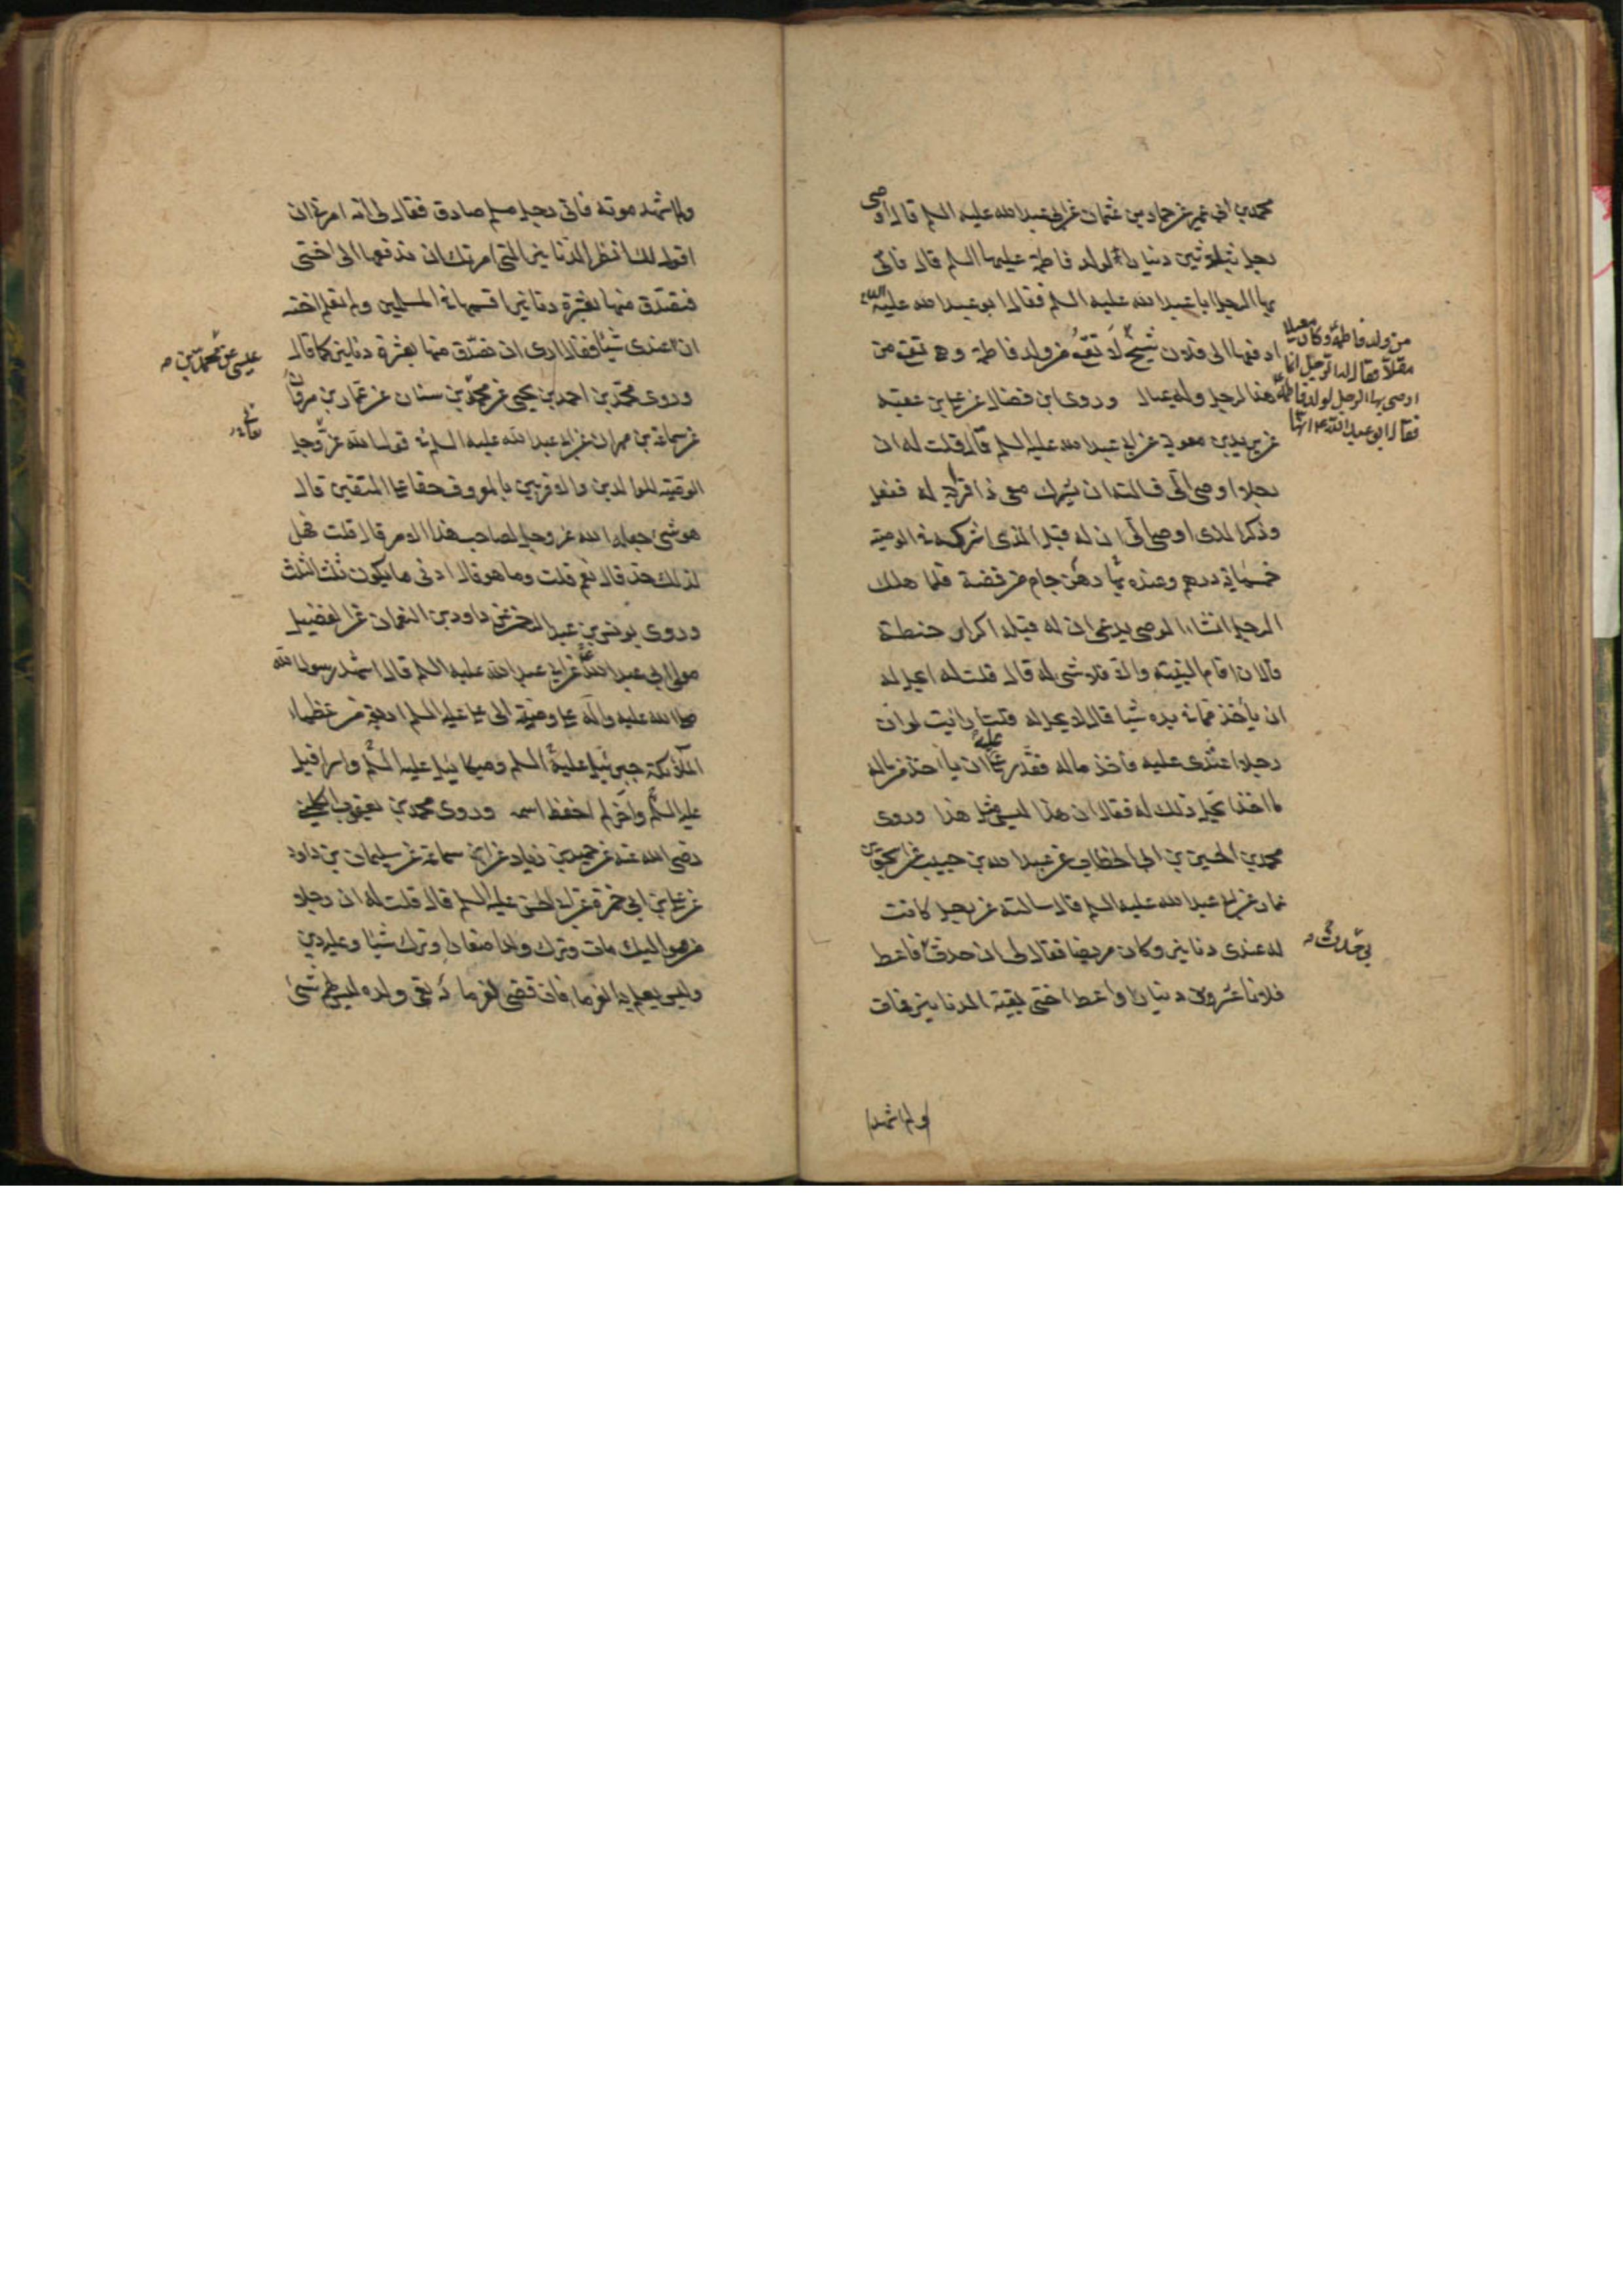 محمد بن ابي عمير عن حماد بن عثمان عن ابي عبد الله عليه السلم قال اوصى
رجل بثلثين دينارا لولد فاطمة عليها السلم قال فاتى
بها الرجل ابا عبد الله عليه السلم فقال ابو عبد الله عليه السلم
ادفعها الى فلان شيخ من ولد فاطمة وكان معيلا
مقلا فقال له الرجل انما
اوصى بها الرجل لولد فاطمة
فقال ابو عبد الله ع انها
لا تقع من ولد فاطمة وهي تقع من
هذا الرجل وله عيال وروى ابن فضال عن علي بن عقبة
عن بريد بن معوية عن ابي عبد الله عليه السلم قال قلت له ان
رجلا اوصى الي فسالته ان يشرك معي ذا قرابة له ففعل
وذكر الذي اوصى الي ان له قبل الذي اشركه في الوصية
خمسماية درهم وعنده بها رهن جام من فضة فلما هلك
الرجل انشاء الوصي يدعي ان له قبله اكرار حنطة
قال ان اقام البينة والا فلا شي له قال قلت له ايحل له
ان يأخذ مما في يده شيا قال لا يحل له قلت ارايت لو ان
رجلا اعتدى عليه فاخذ ماله فقدر على ان ياخذ من ماله
ما اخذ ايحل ذلك له فقال ان هذا ليس مثل هذا وروى
محمد بن الحسين بن ابي الخطاب عن عبد الله بن حبيب عن اسحق بن
عمار عن ابي عبد الله عليه السلم قال سالته عن رجل كانت
له عندي دنانير وكان مريضا فقال لي ان حدث بي حدث فاعط
فلانا عشرين دينارا واعط اختي بقية الدنانير فمات
ولم اشهد
ولم اشهد موته فاتى رجل مسلم صادق فقال لي انه امرني ان
اقول لك انظر الدنانير التي امرتك ان تدفعها الى اختي
فتصدق منها بعشرة دنانير اقسمها في المسلمين ولم تعلم اخته
ان عندي شيا فقال ارى ان تصدق منها بعشرة دنانير كما قال
وروى محمد بن احمد بن يحيى عن محمد بن عيسى عن محمد بن سنان عن عمار بن مروان
عن سماعة بن مهران عن ابي عبد الله عليه السلم في قول الله عز وجل
الوصية للوالدين والاقربين بالمعروف حقا على المتقين قال
هو شي جعله الله عز وجل لصاحب هذا الامر قال قلت فهل
لذلك حد قال نعم قلت وما هو قال ادنى ما يكون ثلث الثلث
وروى يونس بن عبد الرحمن عن داود بن النعمان عن الفضيل
مولى ابي عبد الله ع عن ابي عبد الله عليه السلم قال اشهد رسول الله
صلى الله عليه واله على وصيته الى علي عليه السلم اربعة من عظماء
الملائكة جبرئيل عليه السلم وميكائيل عليه السلم واسرافيل
عليه السلم واخر لم احفظ اسمه وروى محمد بن يعقوب الكليني
رضي الله عنه عن حميد بن زياد عن ابن سماعة عن سليمان بن داود
عن علي بن ابي حمزة عن ابي الحسن عليه السلم قال قلت له ان رجلا
من مواليك مات وترك ولدا صغارا وترك شيا وعليه دين
وليس يعلم به الغرما فان قضى لغرمائه بقي ولده ليس لهم شئ